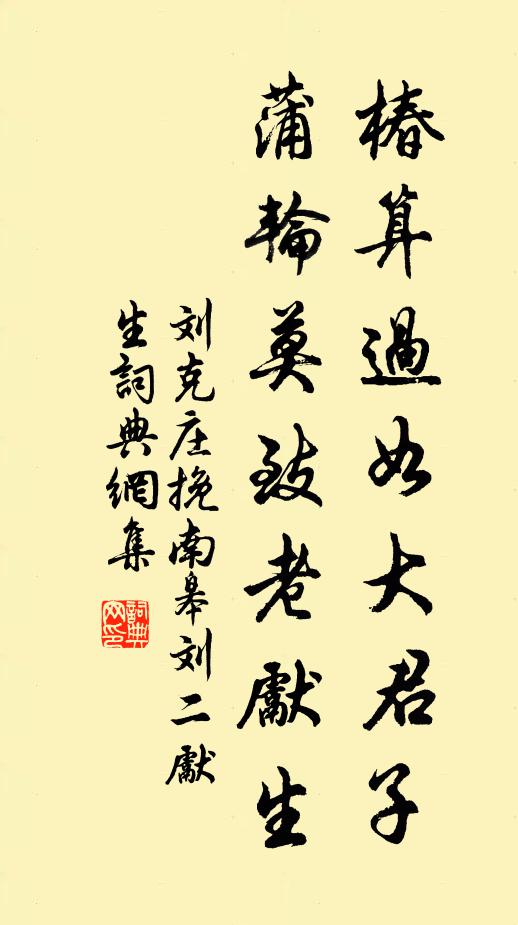 椿算過如大君子
蒲輪莫致老獻生
刘克庄挽南皋刘二獻
生詞典網集
詞典
网印